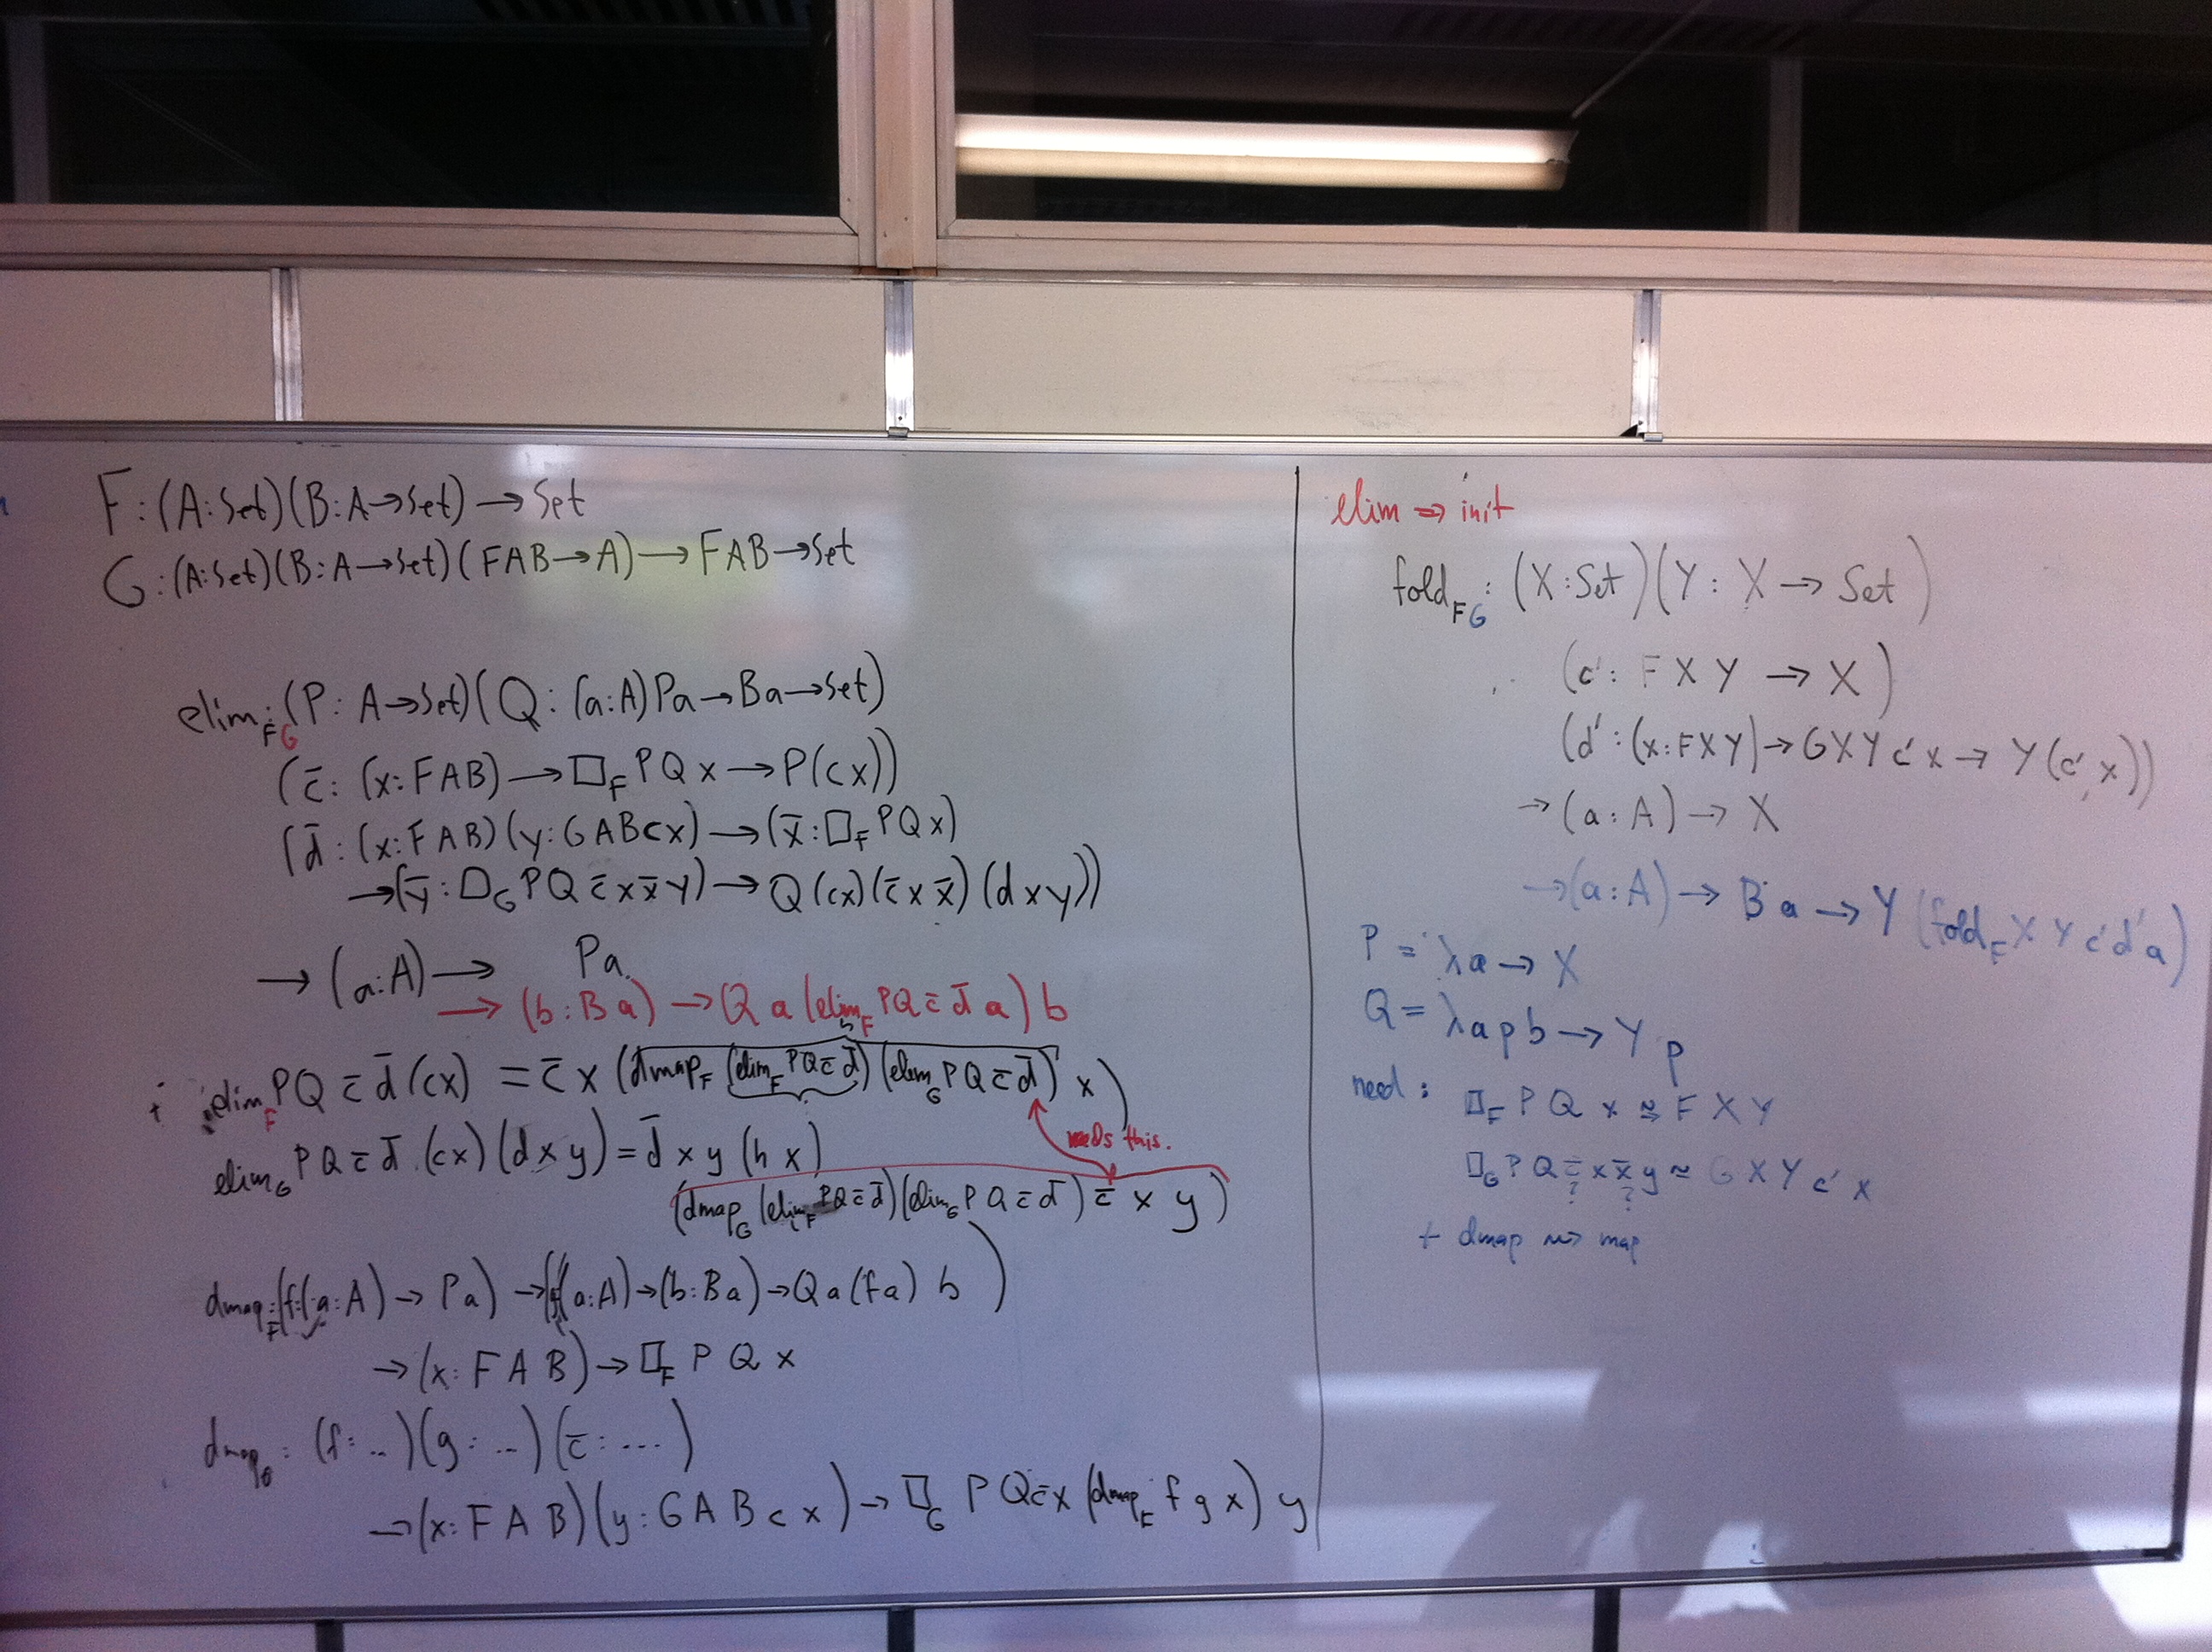 F : (A:Set)(B:A→Set) → Set
G : (A:Set)(B:A→Set)(FAB→A) → FAB→Set
elim_FG : (P: A→Set)(Q: (a:A)Pa→Ba→Set)
(c̄: (x:FAB) → □_F PQx → P(cx))
(d̄: (x:FAB)(y:GABcx) → (x̄:□_F PQx)
→(ȳ:□_G PQ c̄ x x̄ y) → Q(cx)(c̄ x x̄)(dxy))
→ (a:A) → Pa
→ (b:Ba) → Q a (elim_F PQ c̄ d̄ a) b
elim_F PQ c̄ d̄ (cx) = c̄ x (dmap_F (elim_F PQ c̄ d̄)(elim_G PQ c̄ d̄) x)
h
needs this.
elim_G PQ c̄ d̄ (cx)(dxy) = d̄ x y (h x)
(dmap_G (elim_F PQ c̄ d̄)(elim_G PQ c̄ d̄) c̄ x y)
dmap_F : (f:(a:A) → Pa) → (g:(a:A)→(b:Ba)→Qa(fa) b)
→(x: F A B) → □_F P Q x
dmap_G : (f: ...)(g: ...)(c̄: ....)
→(x: F A B)(y: G A B c x) → □_G P Q c̄ x (dmap_F f g x) y
elim ⇒ init
fold_FG : (X:Set)(Y: X → Set)
(c': F X Y → X)
(d': (x:FXY) → GXY c' x → Y(c' x))
→ (a:A) → X
→ (a:A) → B a → Y (fold_F X Y c' d' a)
P = λa → X
Q = λ a p b → Y p
need :
□_F P Q x ≅ F X Y
□_G P Q c̄ x x̄ y ≈ G X Y c' x
? ?
+ dmap ⇝ map